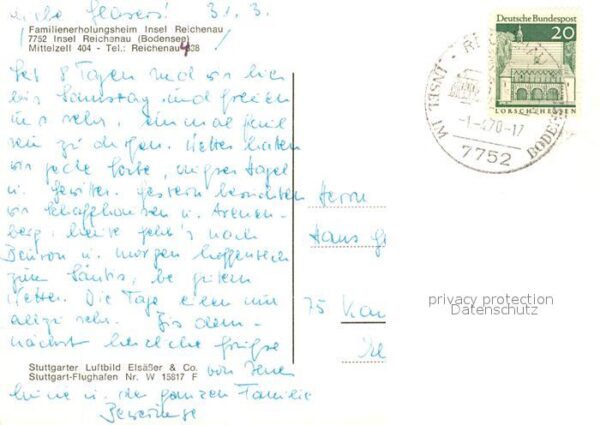 31. 3.
Familienerholungsheim Insel Reichenau
7752 Insel Reichenau (Bodensee)
Mittelzell 404 - Tel.: Reichenau 438
Seit 8 Tagen sind wir hier
bis Samstag und freuen
uns sehr, einmal
sein zu dürfen. Wetter hatten
wir jede Sorte, sogar Hagel
u. Gewitter. Gestern besuchten
wir Schaffhausen u. Arenen-
berg, heute geht's nach
Beuron u. morgen hoffentlich
zum Säntis, bei gutem
Wetter. Die Tage eilen nur
allzu sehr. Bis dem-
nächst herzliche Grüße
von Ihnen
u. der ganzen Familie
Stuttgarter Luftbild Elsäßer & Co.
Stuttgart-Flughafen Nr. W 15817 F
Deutsche Bundespost
20
LORSCH/HESSEN
INSEL
IM BODENSEE
-1.-4.70-17
7752
Herrn
Hans
75 Kar
privacy protection
Datenschutz